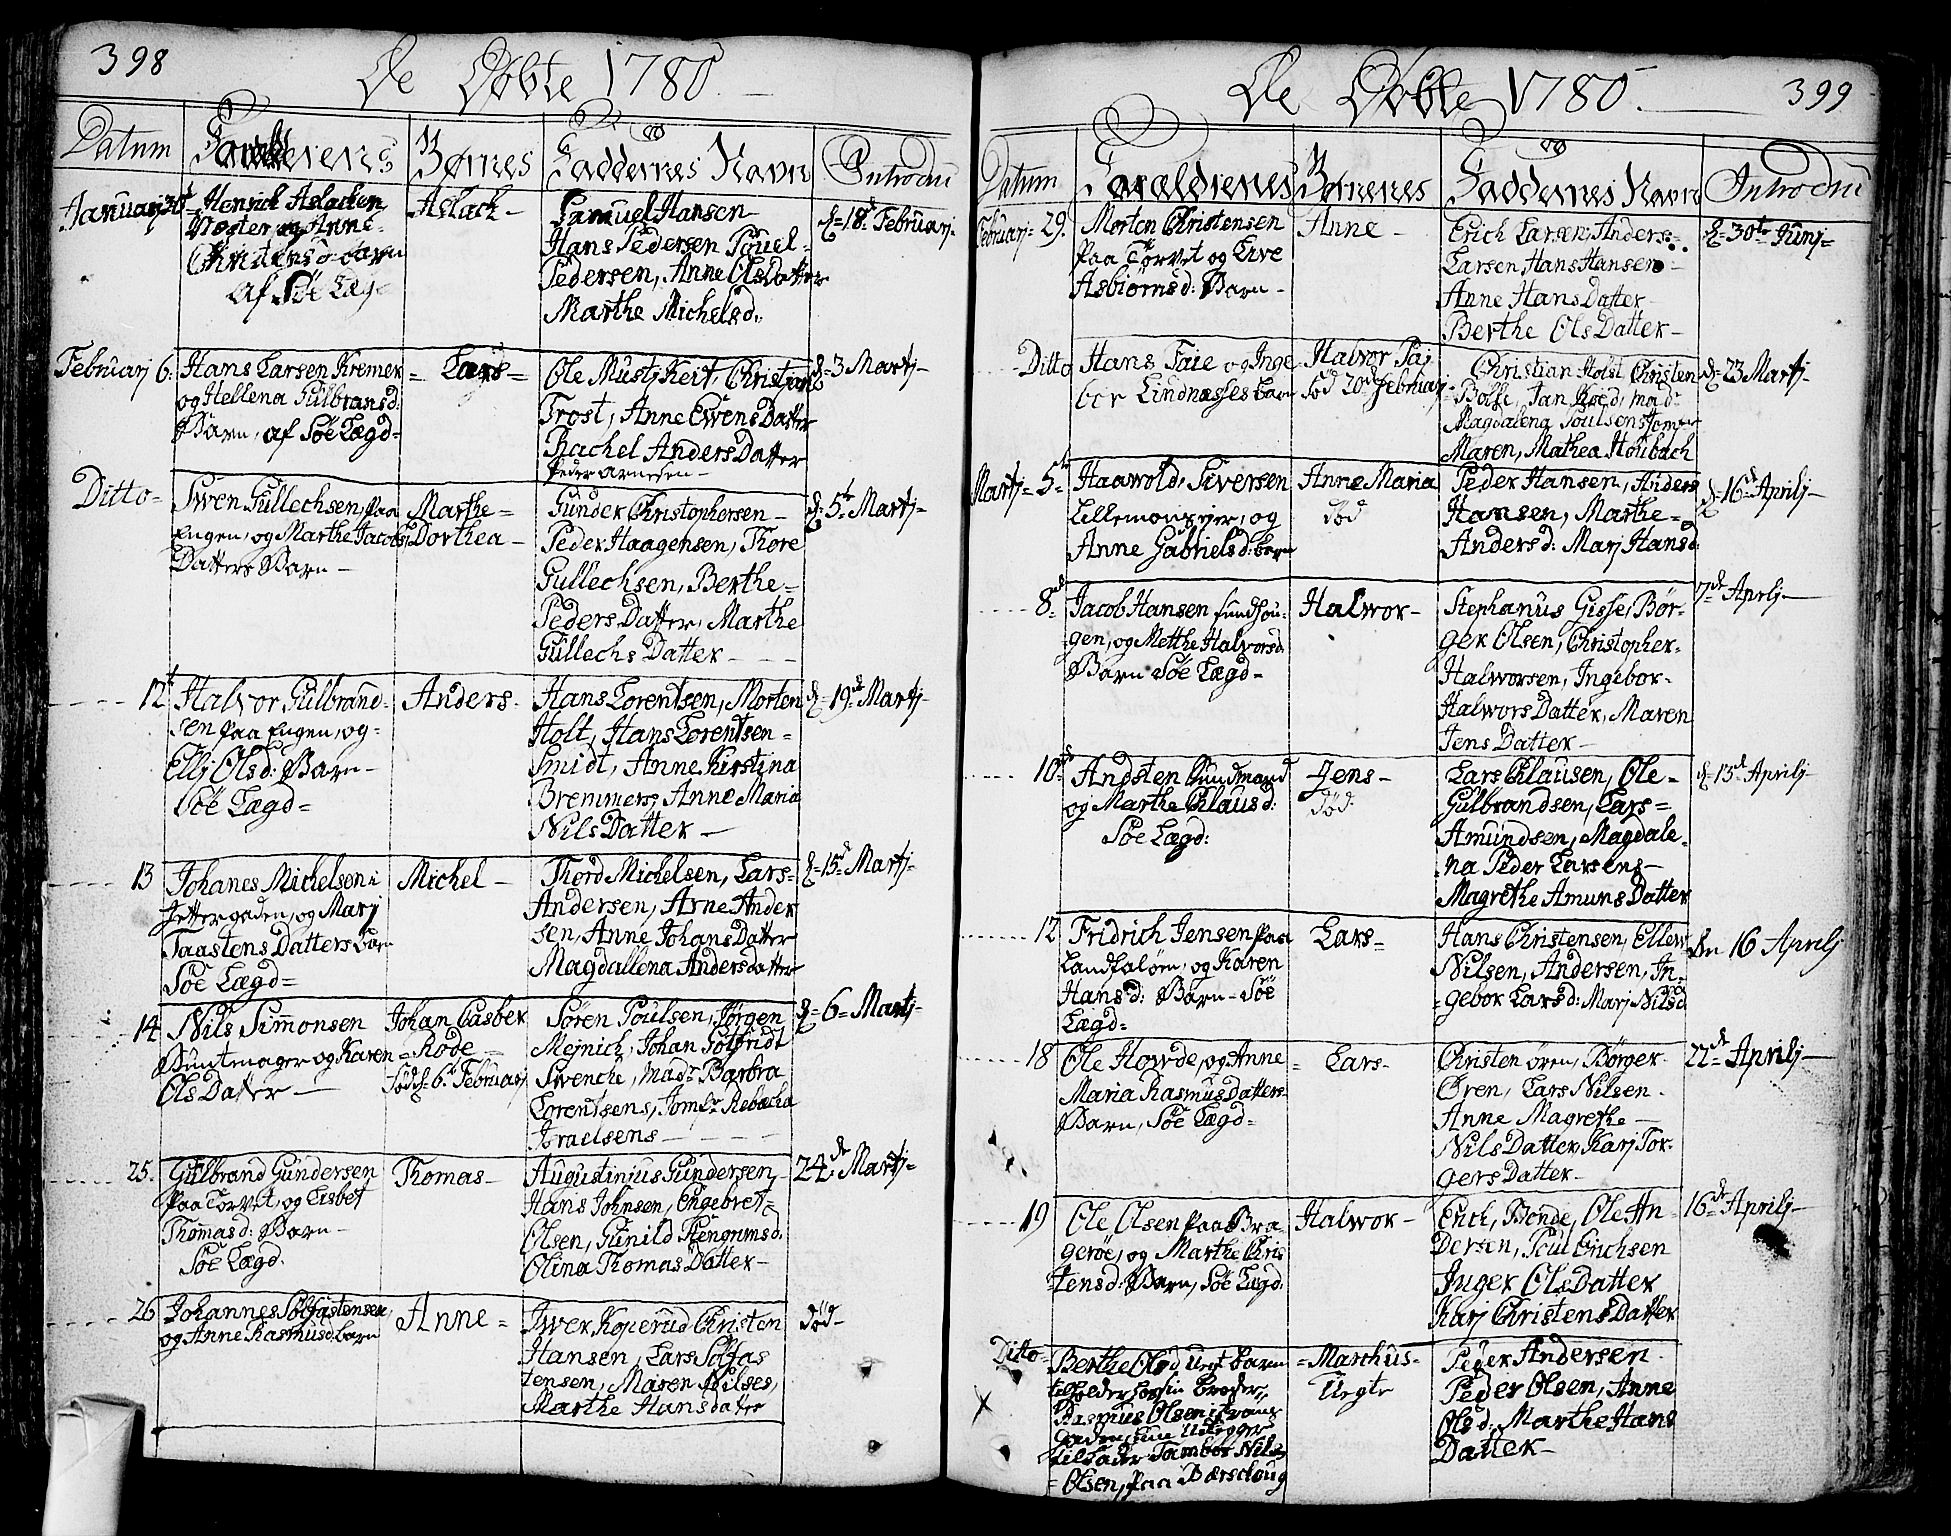 398
De Døbte 1780
Datum
Børnes
Faddernes Navn
Introdu
Januarj 30d
Henrich Aslacken
Næster og Anne
Christensd: barn
af Söe Læg
Aslach
Samuel Hansen
Hans Pedersen Pouel
Pedersen, Anne Olsdatter
Marthe Michelsd:
d= 18d Februarj
Februarj 6:
Hans Larsen Kremer
og Hellena Gulbransd:
Barn, af Söe Lægd=
= Lars =
Ole Mustj Keit, Christian
Trost, Anne Ewens Datter
Rachel Anders Datter
Peder Arnesen
d= 3 Martj
Ditto
Swen Gullechsen, paa
Engen, og Marthe Jacobs
Datters Barn
Marthe=
Dorthea
Gunder Christophersen
Peder Haagensen, Thore
Gullechsen, Berthe=
Peders Datter, Marthe
Gullechs Datter
d= 5te Martj
12t
Halvor Gulbrand-
sen paa Engen, og-
Ellj Olsd: Barn
Söe Lægd=
Anders
Hans Lorentsen, Morten
Holt, Hans Lorentsen=
Smidt, Anne Kirstina
Bremmers, Anne Maria
Nils Datter
d= 19d Martj
13
Johanes Michelsen i
gaden, og Marj
Taastens Datters barn
Söe Lægd=
Michel
Thord Michelsen, Lars=
Andersen, Arne Ander
sen, Anne Johans Datter
Magdallena Anders datter
d= 15d Martj
14
Nils Simmonsen
Buntmager og Karen
Ols Datter
Johan Casber
= Rode
Föd d= 6te Februarj
Sören Poulsen, Jörgen
Mejnich, Johan Gotfridt
Swencke, Mad: Barbra
Lorentsens, Jomfr Rebecha
Israelsens
d= 6= Martj
25.
Gulbrand Gundersen
paa Torvet, og Lisbet
Thomasd: Barn
Söe Lægd.
Thomas
Augustinius Gundersen,
Hans Johnsen, Engebret=
Olsen, Gunild Stengrimsd:
Olina Thomas Datter
24de Martj
26
Johannes Solfastensen
og Anne Rasmusd: barn
Anne =
Iwer Koperud Christen
Hansen, Lars Solfas
tensen, Maren Nilses,
Marthe Hansdatter
död
399
De Døbte 1780.
Datum
Forældrenes
Børnenes
Faddernes Navn
Introdu
Februarj 29.
Morten Christensen
paa Torvet og Live
Asbiörnsd: Barn
Anne
Erich Larsen, Anders
Larsen, Hans Hansen
Anne Hans Datter
Berthe Ols Datter
d= 30te Junj=
Ditto
Hans Faie og Inge
bor Lindnæsses barn
Halvor Faj
föd 20d Februarj
Christian Holst Christen
Bolse, Jan Roed, mad:
Magdalena Poulsens Jomfr
Maren, Mathea Houbach
d= 23 Martj
Martj= 5te
Haavold, Siversen
Lillemonsejer, og
Anne Gabrielsd: barn
Anne Maria
död
Peder Hansen, Anders
Hansen, Marthe=
Andersd: Marj Hansd:
d= 16d Aprilj
8de
Jacob Hansen Sundhou-
gen, og Mætthe Halvorsd:
Barn Söe Lægd=
Halwor
Stephanus Gisse, Bör-
ger Olsen, Christopher
Halworsen, Ingebor
Halwors Datter, Maren
Jens Datter
7de Aprilj
10de
Andsten Sundmand
og Marthe Clausd:
Söe Lægd:
Jens
död
Lars Clausen, Ole
Gulbrandsen, Lars=
Amundsen, Magdale-
na Peder Larsens
Magrethe Amuns Datter
d= 15d Aprilj
12
Fridrich Jensen paa
Landfalöen, og Karen
Hansd: Barn= Söe
Lægd=
Lars=
Hans Christensen, Ellew
Nilsen, Andersen, In=
gebor Larsd: Marj Nilsd
den 16 Aprilj
18
Ole Howde, og Anne
Maria Rasmus Datters
Barn, Söe Lægd=
Lars
Christen Ören, Börger
Ören, Lars Nilsen
Anne Magrethe
Nils Datter, Karj Tor-
gers Datter
22de Aprilj
19
Ole Olsen paa Bra
geröe, og Marthe Chris
tensd: Barn, Söe Lægd
Halwor
Erich, Bonde, Ole An-
dersen, Poul Erichsen
Inger Ols Datter
Karj Christens Datter
16de Aprilj
Ditto
Berthe Olsd Uegt barn
opholder hos sin Broder,
Rasmus Olsen i
gaden, sine Udlegger
til Fader Tambor Nils
Olsen, paa Bærschoug
= Marchus
Uegte
Peder Andersen
Peder Olsen, Anne
Olsd: Marthe Hans
Datter